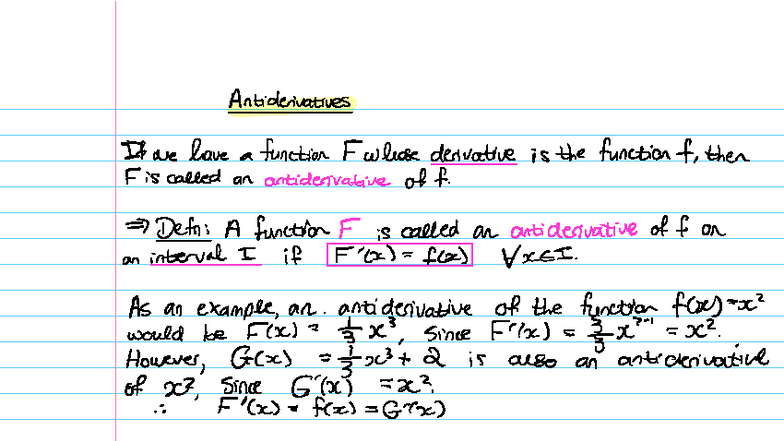 Antiderivatives
If we have a function F whose derivative is the function f, then
F is called an antiderivative of f.
⇒ Defn: A function F is called an antiderivative of f on
an interval I if F'(x) = f(x) ∀x∈I.
As an example, an. antiderivative of the function f(x) = x²
would be F(x) = 1/3 x³, since F'(x) = 3/3 x³⁻¹ = x².
However, G(x) = 1/3 x³ + 2 is also an antiderivative
of x², since G'(x) = x².
∴ F'(x) = f(x) = G'(x)